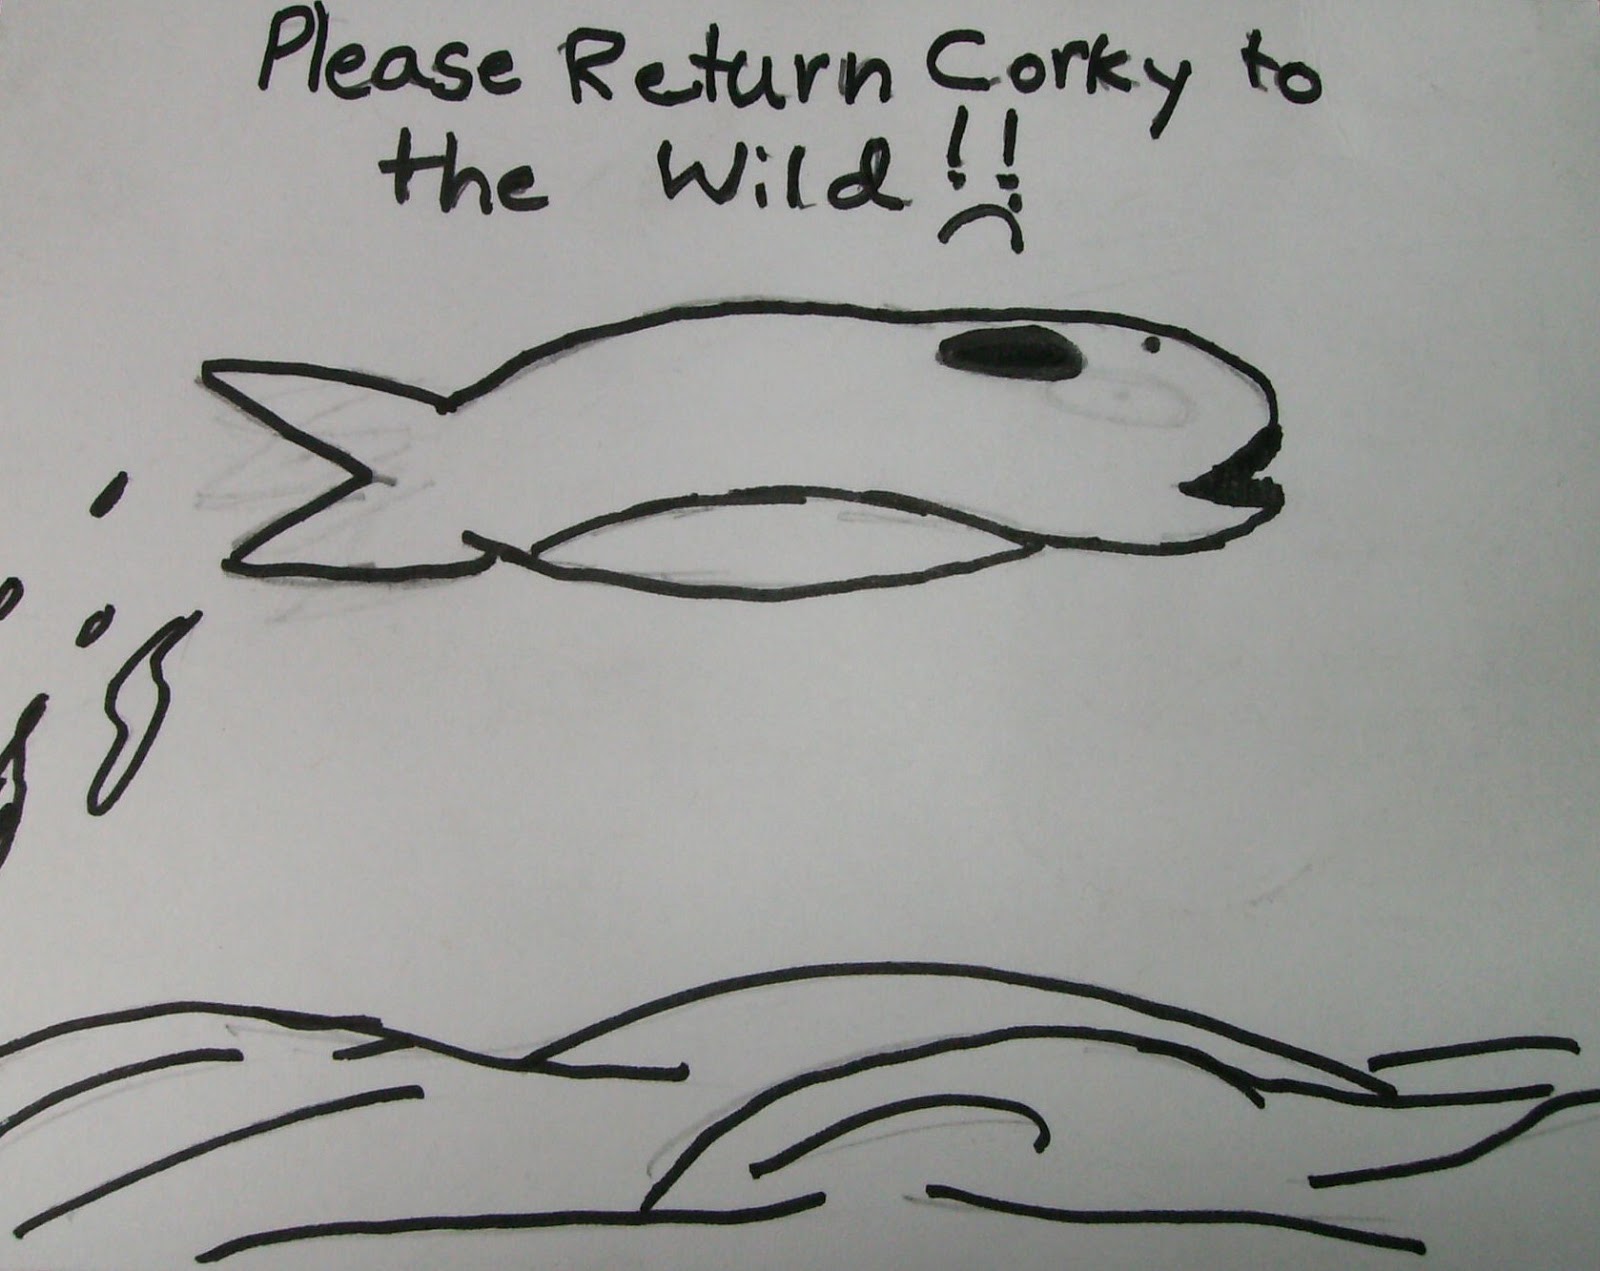 Please Return Corky to
the Wild!!